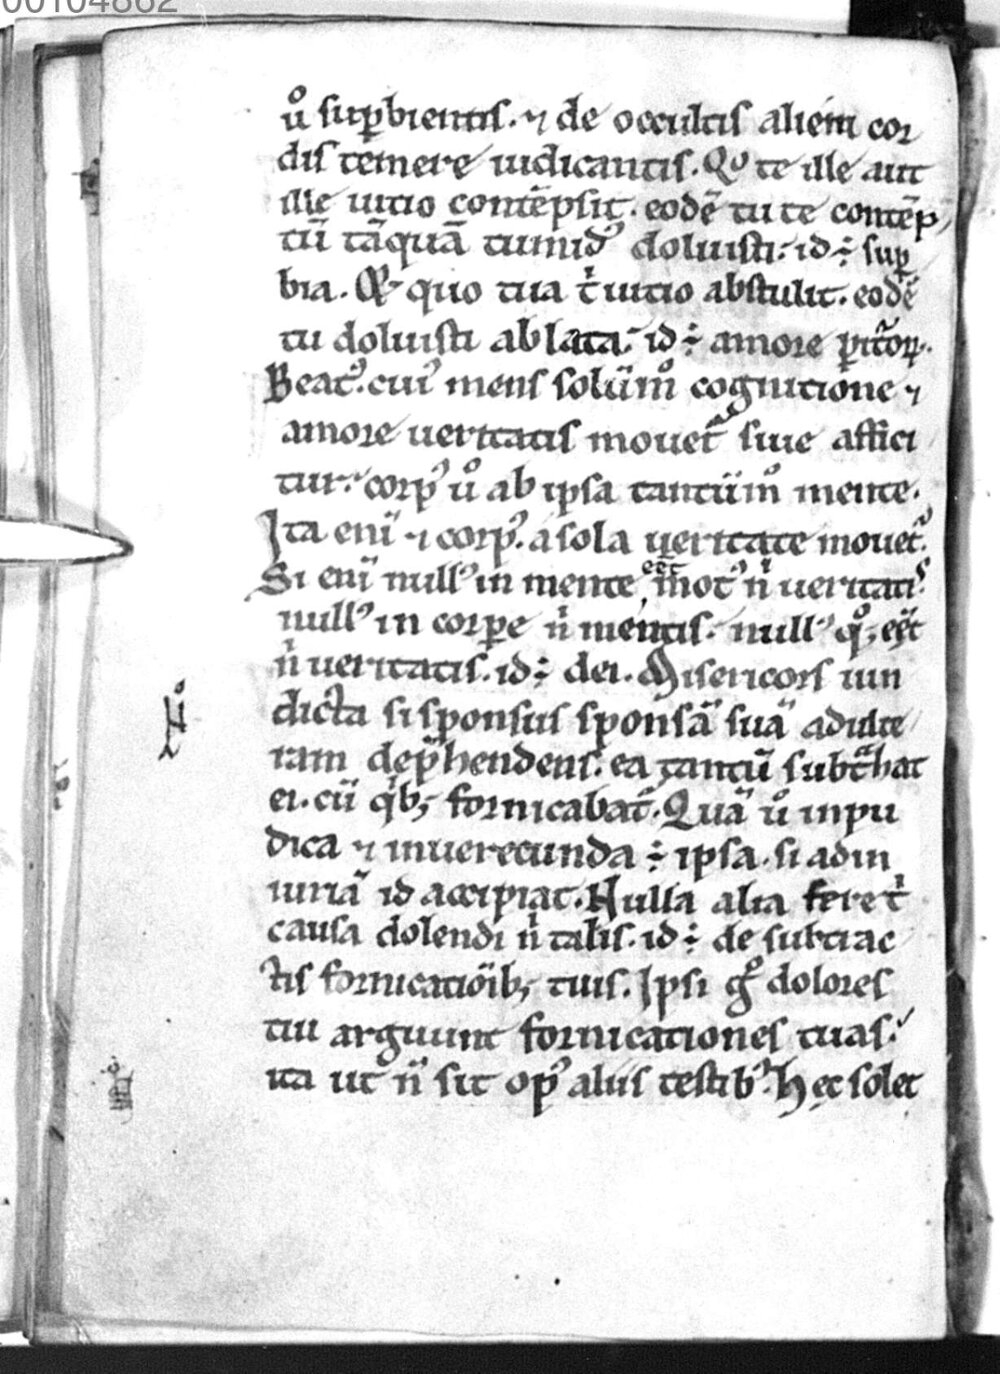 00104862
uͦ sup̱bientis. ⁊ de occultis alieni cor
dis temere iudicantis. Quo te ille aut
ille uitio contēpsit. eodē tu te contēp
tū tāquā tumidꝰ doluisti. id ÷ sup̱
bia. Et quo tua t̾ uitio abstulit. eodē
tu doluisti ablata. id ÷ amore p̱itoꝝ.
Beatꝰ. cuiꝰ mens solūmͦ cognitione ⁊
amore ueritatis mouet᷑ siue affici
tur. corpꝰ uͦ ab ipsa tantūmͦ mente.
Ita enī ⁊ corpꝰ. a sola ueritate mouet᷑.
Si enī nullꝰ in mente eēt motꝰ n̾ ueritatis
nullꝰ in corpe n̾ mentis. nullꝰ qͦꝫ eēt
n̾ ueritatis. id ÷ dei. Misericors iun
dicta si sponsus sponsā suā adulte
ram dep̄hendens. ea tantū subt̾hat
ei. cū qͥbꝫ fornicabat᷑. Quā uͦ inpu
dica ⁊ inuerecunda ÷ ipsa. si ad in
iuriā id accipiat. Nulla alia feret̾
causa dolendi n̾ talis. id ÷ de subtrac
tis fornicatiōibꝫ tuis. Ipsi gͦ dolores
tui arguunt fornicationes tuas.
ita ut n̄ sit opꝰ aliis testibꝰ. Hec solet